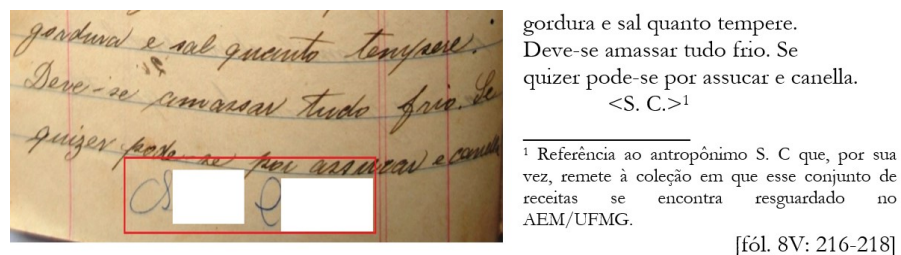 gordura e sal quanto tempere.
Deve-se amassar tudo frio. Se
quizer pode-se por assucar e canella
S C
gordura e sal quanto tempere.
Deve-se amassar tudo frio. Se
quizer pode-se por assucar e canella.
<S. C.>1
1 Referência ao antropônimo S. C que, por sua
vez, remete à coleção em que esse conjunto de
receitas se encontra resguardado no
AEM/UFMG.
[fól. 8V: 216-218]